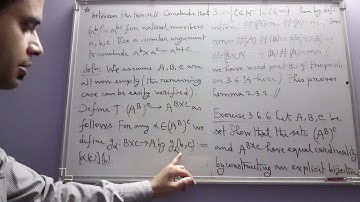 between the two sets. Conclude that
(a^b)^c = a^bc for natural numbers
a, b, c. Use a similar argument
to conclude a^b × a^c = a^b+c.
Soln: We assume A, B, C are
all non empty (the remaining
case can be easily verified).
Define T: (A^B)^C → A^B×C as
follows. For any α ∈ (A^B)^C we
define g_α: B×C → A by g_α(b,c) :=
(α(c))(b).
then by defn
This proves
lemma 2.3.2. //
Exercise 3.6.6 Let A, B, C be
set. Show that the sets (A^B)^C
and A^B×C have equal cardinality
by constructing an explicit bijection